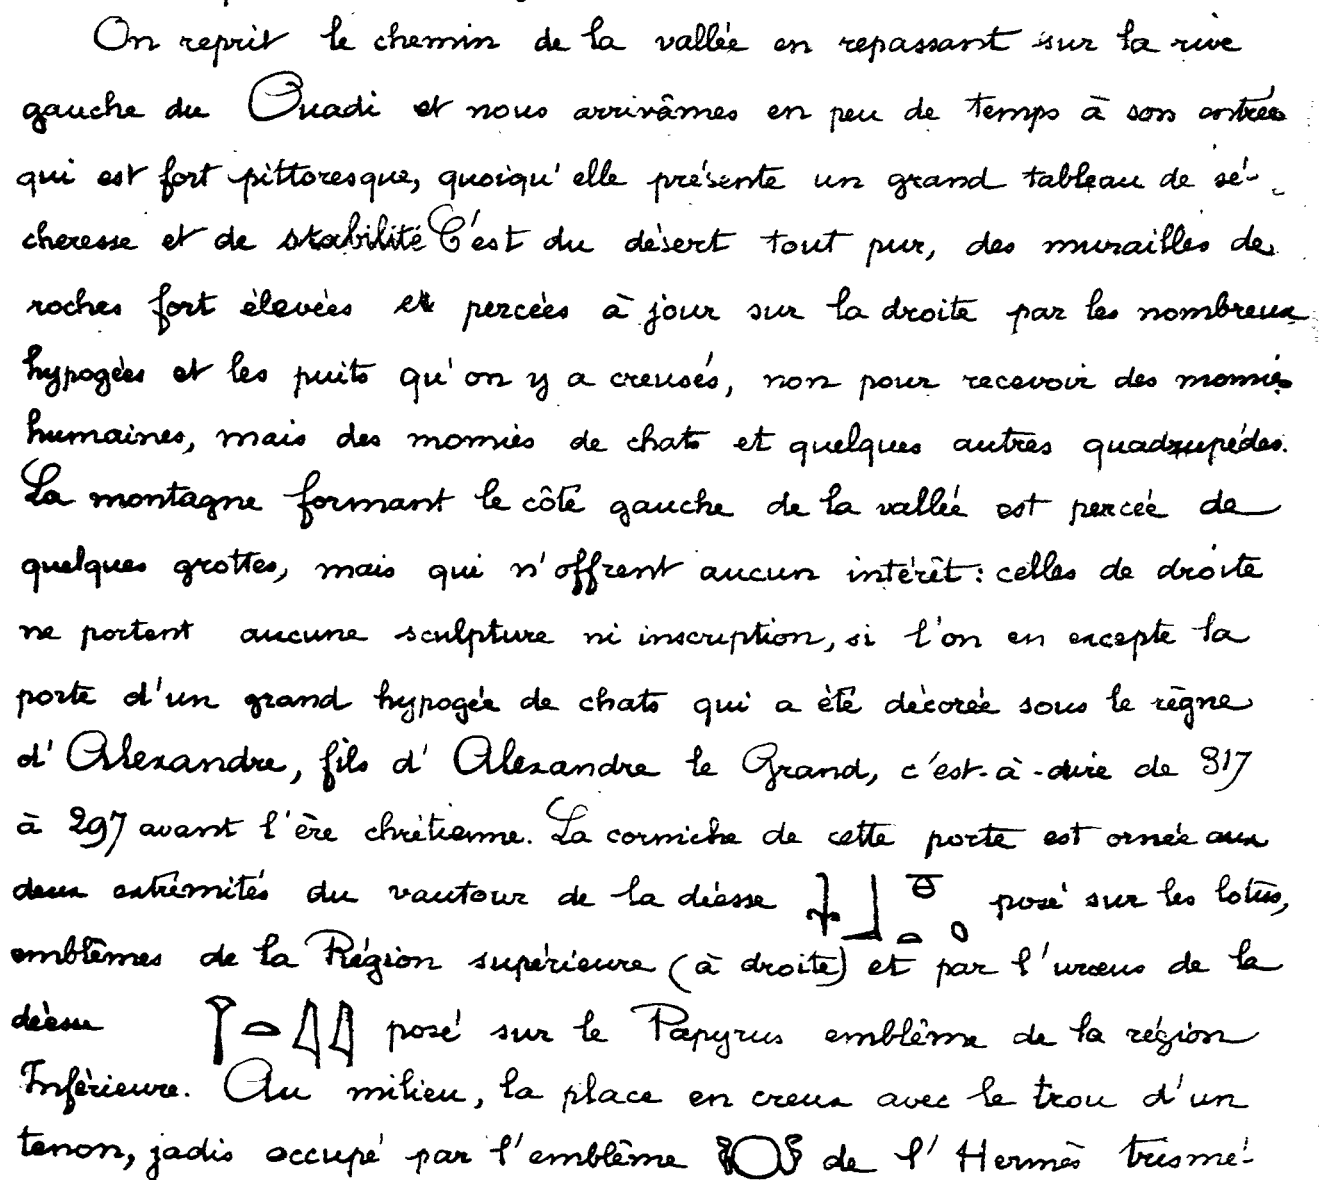 On reprit le chemin de la vallée en repassant sur la rive
gauche du Ouadi et nous arrivâmes en peu de temps à son entrée
qui est fort pittoresque, quoiqu'elle présente un grand tableau de sé-
cheresse et de stabilité C'est du désert tout pur, des murailles de
roches fort élevées et percées à jour sur la droite par les nombreux
hypogées et les puits qu'on y a creusés, non pour recevoir des momies
humaines, mais des momies de chats et quelques autres quadrupédes.
La montagne formant le côté gauche de la vallée est percée de
quelques grottes, mais qui n'offrent aucun intérêt : celles de droite
ne portent aucune sculpture ni inscription, si l'on en excepte la
porte d'un grand hypogée de chats qui a été décorée sous le règne
d'Alexandre, fils d'Alexandre le Grand, c'est-à-dire de 317
à 297 avant l'ère chrétienne. La corniche de cette porte est ornée aux
deux extrémités du vautour de la déesse posé sur les lotus,
emblêmes de la Région supérieure (à droite) et par l'uræus de la
déesse posé sur le Papyrus emblême de la région
Inférieure. Au milieu, la place en creux avec le trou d'un
tenon, jadis occupé par l'emblême de l'Hermès trismé-